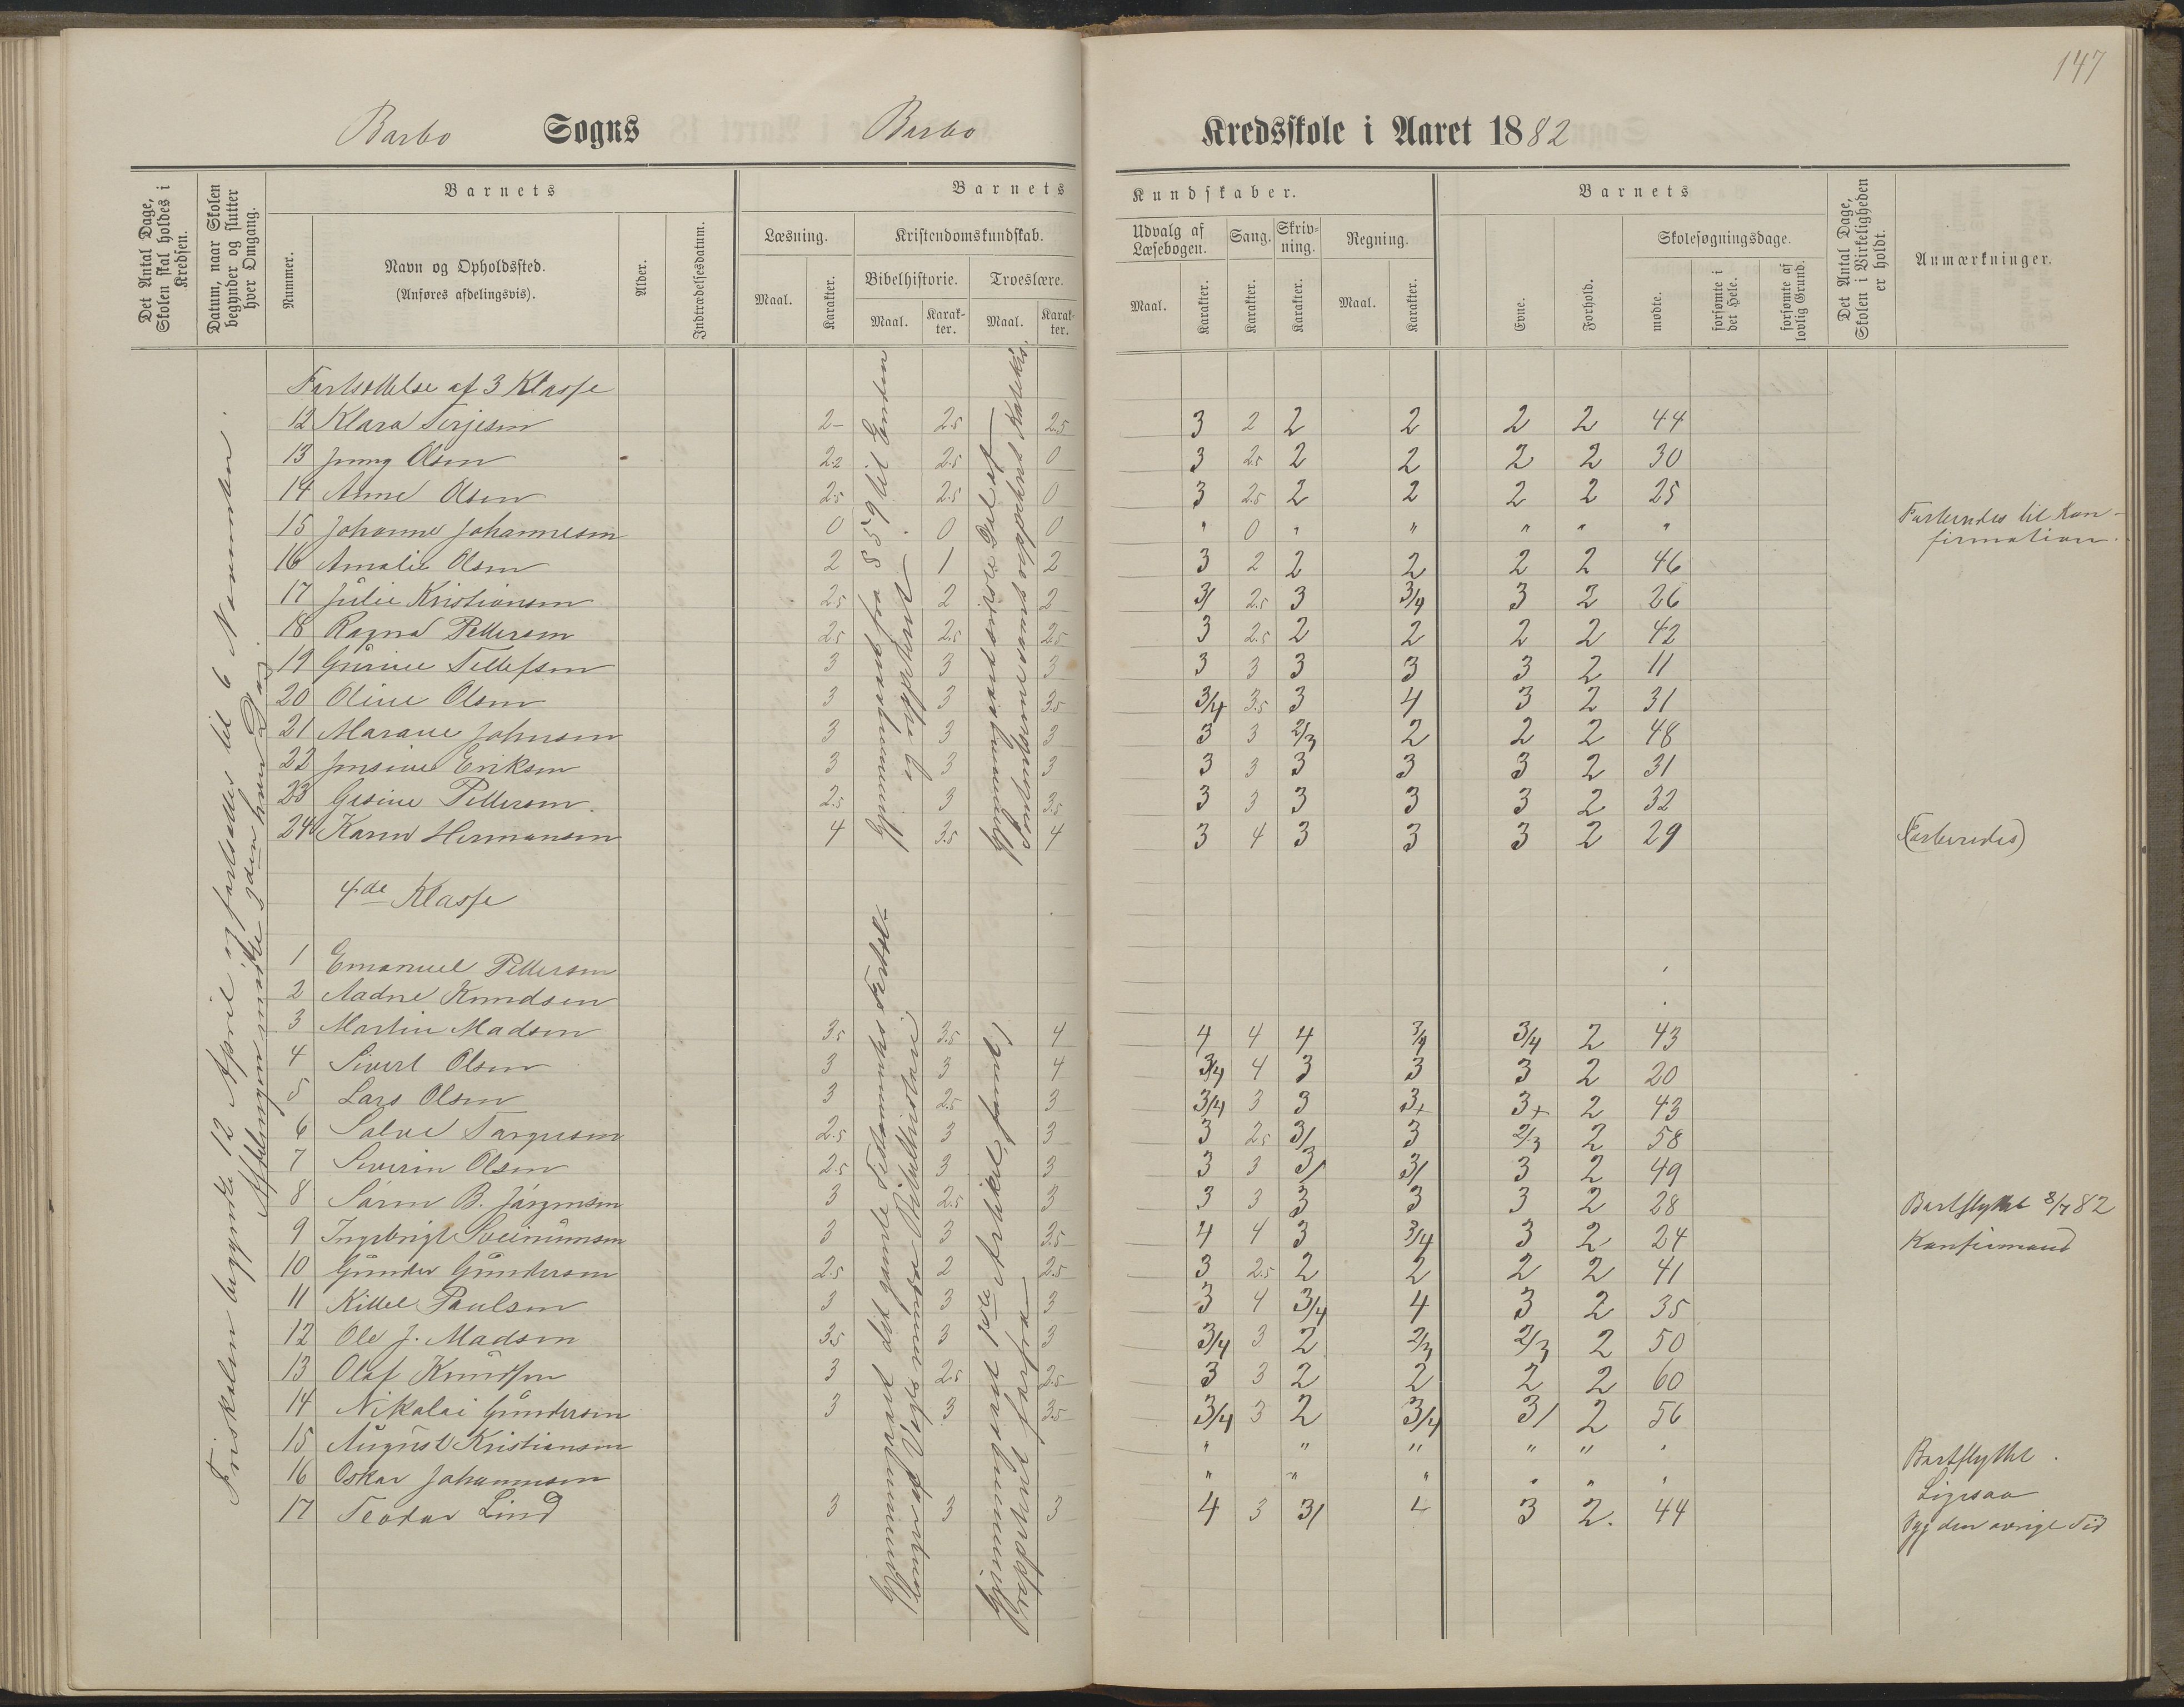 147
Barbo Sogns Barbo Kredsskole i Aaret 1882
Det Antal Dage, Skolen skal holdes i Kredsen.
Datum, naar Skolen begynder og slutter hver Omgang.
Barnets
Nummer.
Navn og Opholdssted.
(Anføres afdelingsvis).
Alder.
Indtrædelsesdatum.
Barnets Kundskaber.
Læsning.
Maal. Karakter.
Kristendomskundskab.
Bibelhistorie. Troeslære.
Maal. Karakter. Maal. Karakter.
Udvalg af Læsebogen. Sang. Skrivning. Regning.
Maal. Karakter. Karakter. Karakter. Maal. Karakter.
Barnets
Evne. Forhold.
Skolesøgningsdage.
mødte. forsømte i det Hele. forsømte af lovlig Grund.
Det Antal Dage, Skolen i Virkeligheden er holdt.
Anmærkninger.
begyndte 12 April og fortsattes til 6 November.
Afdelingen mødte 3den hver Dag
Fortsættelse af 3 Klasse
12 Klara Terjesen 2- 2.5 2.5 3 2 2 2 2 2 44
13 Jenny Olsen 2.2 2.5 0 3 2.5 2 2 2 2 30
14 Anne Olsen 2.5 2.5 0 3 2.5 2 2 2 2 25
15 Johanne Johannesen 0 0 0 " 0 " " " " " Forberedes til Konfirmation.
16 Amalie Olsen 2 1 2 3 2 2 2 2 2 46
17 Julie Kristiansen 2.5 2 2 3/ 2.5 3 3/4 3 2 26
18 Ragna Pettersen 2.5 2.5 2.5 3 2.5 2 2 2 2 42
19 Gurine Tellefsen 3 3 3 3 3 3 3 3 2 11
20 Oline Olsen 3 3 3.5 3/4 3.5 3 4 3 2 31
21 Marane Johnsen 3 3 3 3 3 2/3 2 2 2 48
22 Jensine Eriksen 3 3 3 3 3 3 3 3 2 31
23 Gesine Pettersen 2.5 3 3.5 3 3 3 3 3 2 32
24 Karen Hermansen 4 3.5 4 3 4 3 3 3 2 29 (Forberedes)
Gjennemgaaet fra § 59 til Enden
og oppteret
4de Klasse
1 Emanuel Pettersen
2 Aadne Knudsen
3 Martin Madsen 3.5 3.5 4 4 4 4 3/4 3/4 2 43
4 Sivert Olsen 3 3 4 3/4 4 3 3 3 2 20
5 Lars Olsen 3 2.5 3 3/4 3 3 3+ 3+ 2 43
6 Salve Targesen 2.5 3 3 3 2.5 3/ 3 2/3 2 58
7 Severin Olsen 2.5 3 3 3 3 3/ 3/ 3 2 49
8 Søren B. Jørgensen 3 2.5 3 3 3 3 3 3 2 28 Bortflyttet 8/7 82
9 Ingebrigt Sveinunsen 3 3 3.5 4 4 3 3/4 3 2 24 Konfirmand
10 Gunder Gundersen 2.5 2 2.5 3 2.5 2 2 2 2 41
11 Kittel Paulsen 3 3 3 3 4 3/4 4 3 2 35
12 Ole J. Madsen 3.5 3 3 3/4 3 2 2/3 2/3 2 50
13 Olaf Knudsen 3 2.5 2.5 3 3 2 2 2 2 60
14 Nikolai Gundersen 3 3 3.5 3/4 3 2 3/4 3/ 2 56
15 August Kristiansen " " " " " " Bortflyttet.
16 Oskar Johannesen " " " " " " Ligesaa
17 Teodor Lind 3 3 3 4 3 3/ 4 3 2. 44 Syg den øvrige Tid
Gjennemgaaet det gamle Testamentes